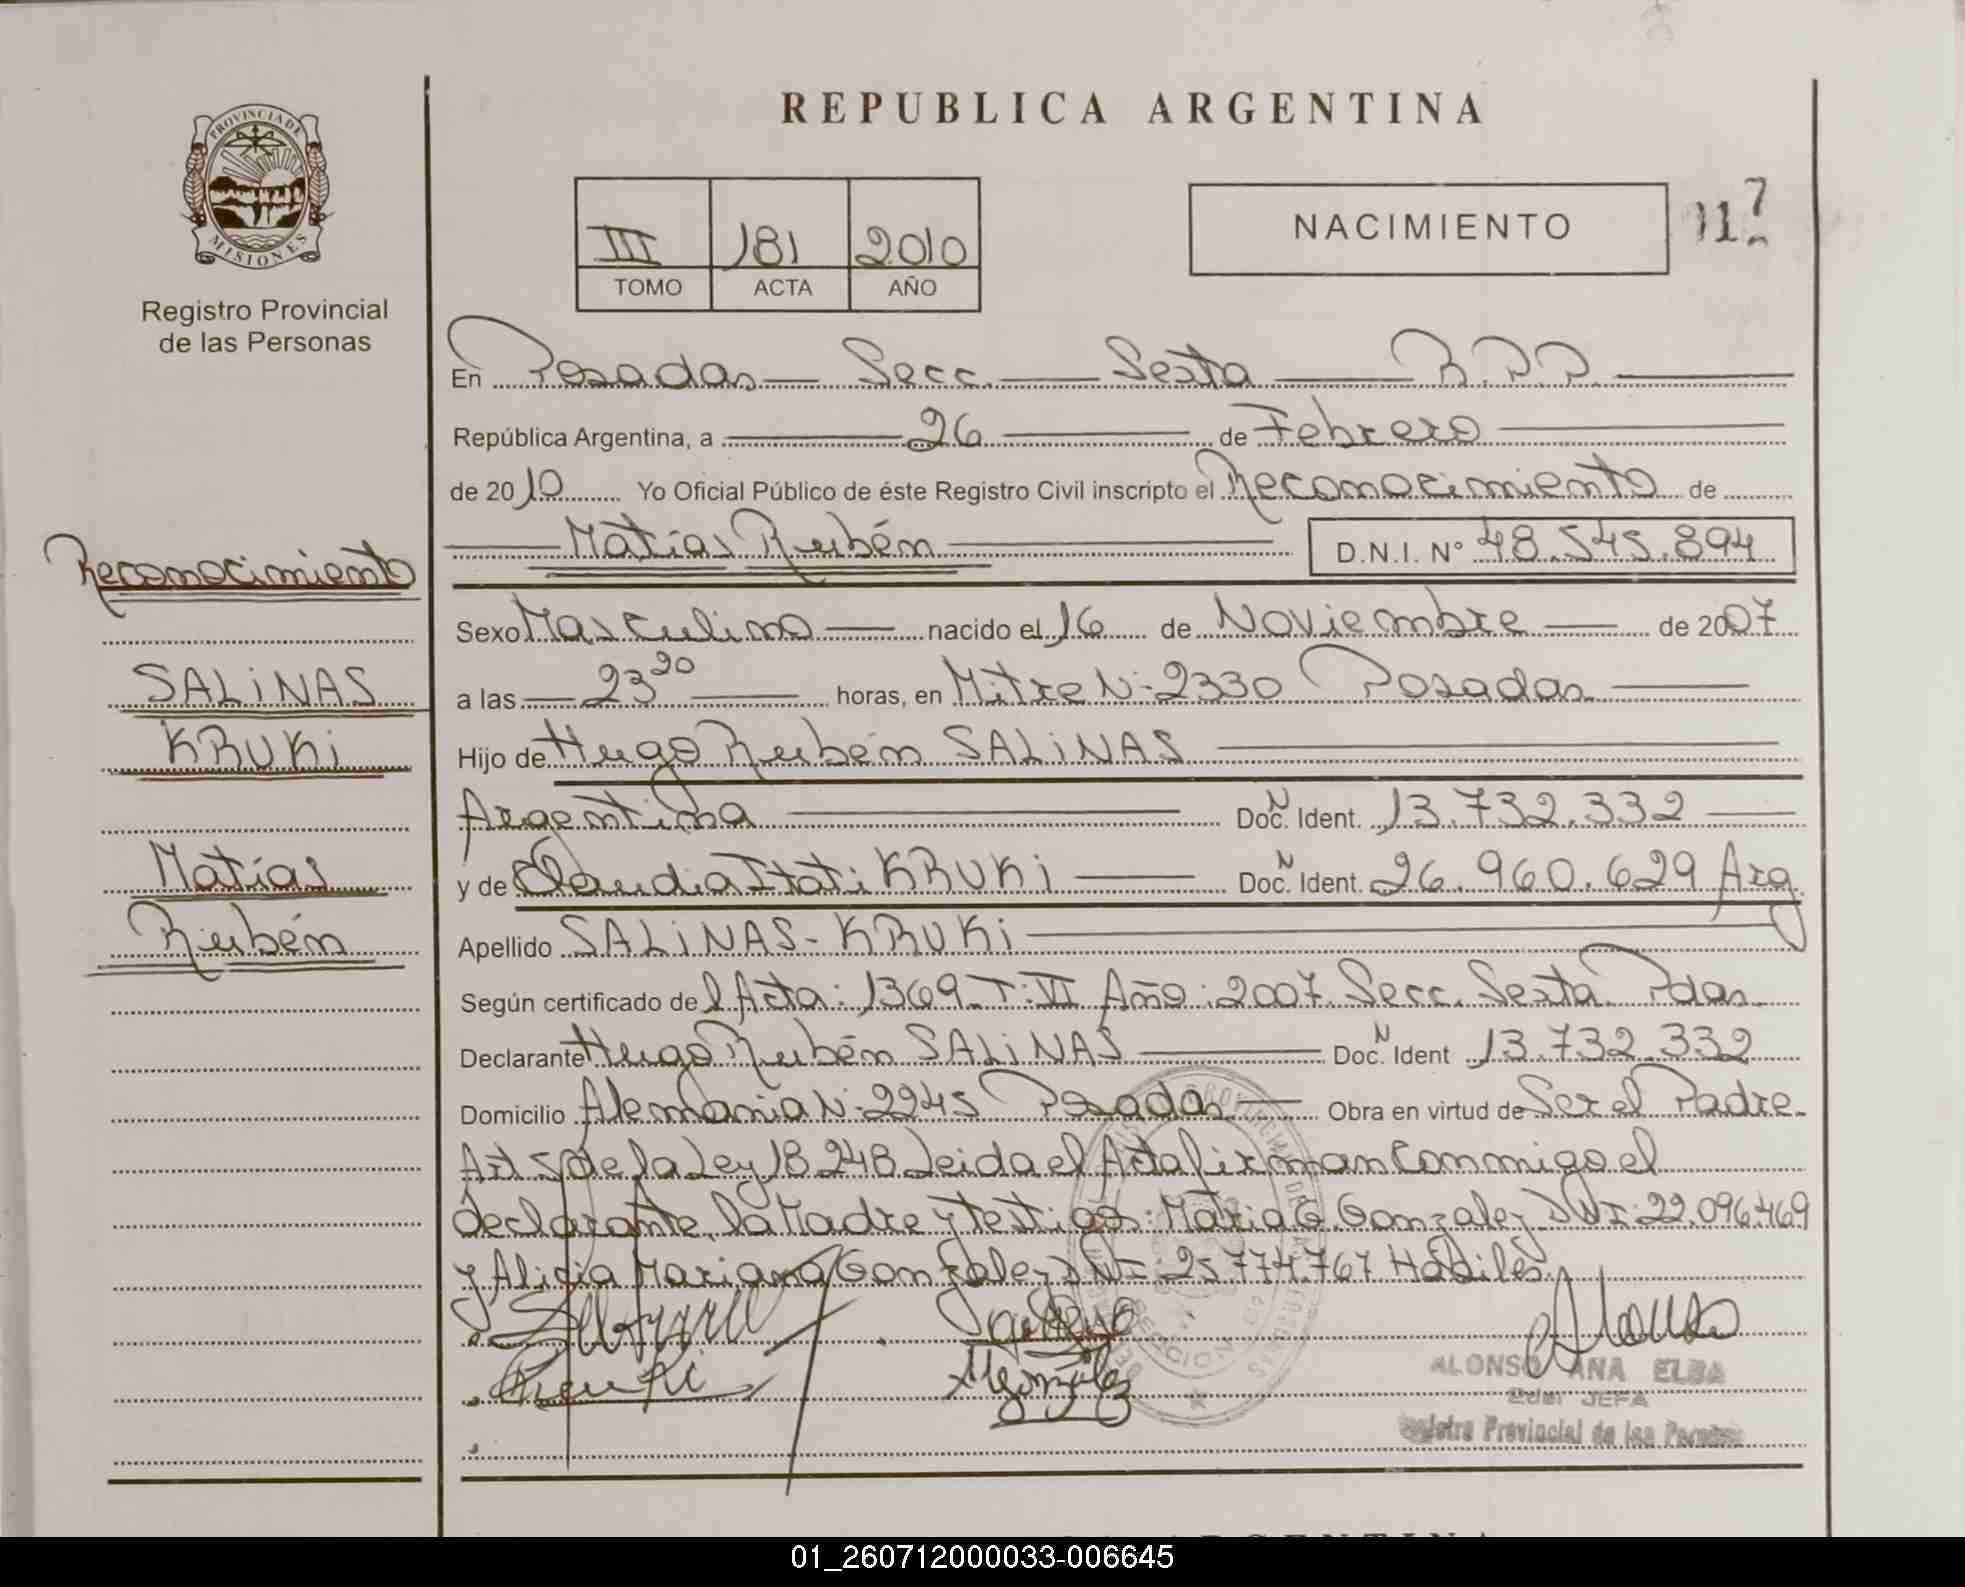 REPUBLICA ARGENTINA
PROVINCIA DE
MISIONES
Registro Provincial
de las Personas
III 181 2010
TOMO ACTA AÑO
NACIMIENTO
117
En Posadas Secc. Sexta R.P.P.
República Argentina, a 26 de Febrero
de 2010 Yo Oficial Público de éste Registro Civil inscripto el Reconocimiento de
Matías Rubén D.N.I. N° 48.545.894
Reconocimiento
SALiNAS
KRUKi
Matías
Rubén
Sexo Masculino nacido el 16 de Noviembre de 2007
a las 23 20 horas, en Mitre N: 2330 Posadas
Hijo de Hugo Rubén SALiNAS
Argentina Doc. N Ident. 13.732.332
y de Claudia Itati KRUKi Doc. N Ident. 26.960.629 Arg.
Apellido SALiNAS-KRUKi
Según certificado de l Acta: 1369 T: VI Año: 2007 Secc. Sexta Pdas
Declarante Hugo Rubén SALiNAS Doc. N Ident 13.732.332
Domicilio Alemania N: 2245 Posadas Obra en virtud de Ser el Padre
Art 5 de la Ley 18.248 Leida el Acta firman Conmigo el
declarante, la Madre y testigos: Maria G. Gonzalez DNI: 22.096.469
y Alicia Mariana Gonzalez DNI 25.774.767 Habiles.
ALONSO ANA ELBA
JEFA
Registro Provincial de las Personas
01_260712000033-006645